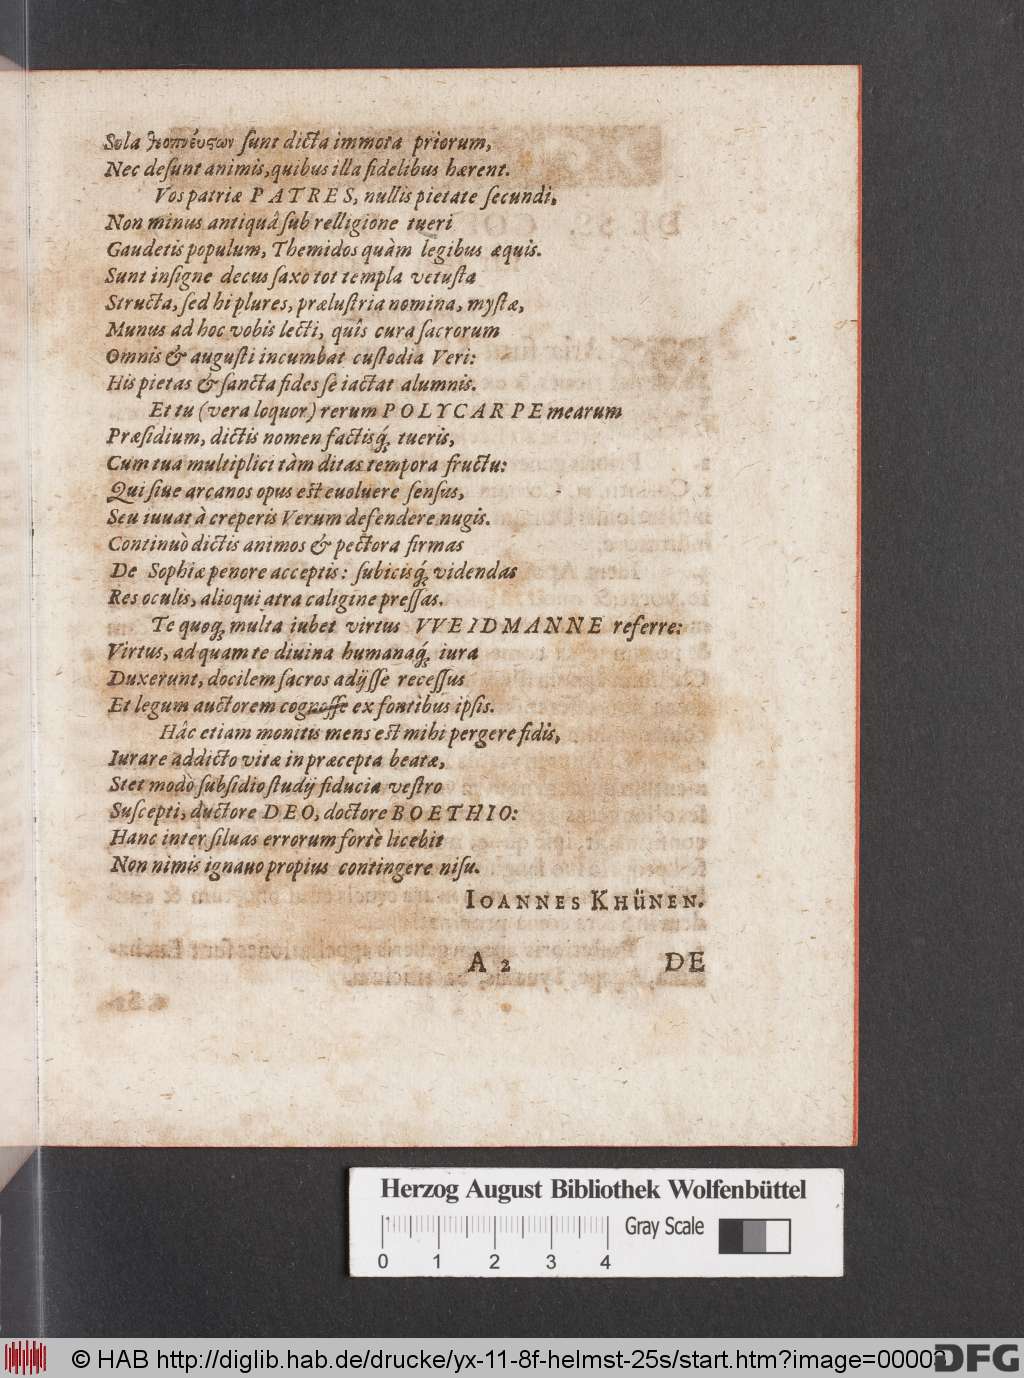 Sola θεοπνεύςων sunt dicta immota priorum,
Nec desunt animis, quibus illa fidelibus hærent.
Vos patriæ PATRES, nullis pietate secundi,
Non minus antiquâ sub relligione tueri
Gaudetis populum, Themidos quàm legibus æquis.
Sunt insigne decus saxo tot templa vetusta
Structa, sed hi plures, prælustria nomina, mystæ,
Munus ad hoc vobis lecti, quîs cura sacrorum
Omnis & augusti incumbat custodia Veri:
His pietas & sancta fides se iactat alumnis.
Et tu (vera loquor) rerum POLYCARPE mearum
Præsidium, dictis nomen factisq́; tueris,
Cum tua multiplici tàm ditas tempora fructu:
Qui siue arcanos opus est euoluere sensus,
Seu iuuat à creperis Verum defendere nugis.
Continuò dictis animos & pectora firmas
De Sophiæ penore acceptis: subicisq́; videndas
Res oculis, alioqui atra caligine pressas.
Te quoq; multa iubet virtus VVEIDMANNE referre:
Virtus, ad quam te diuina humanaq́; iura
Duxerunt, docilem sacros adijsse recessus
Et legum auctorem cognosse ex fontibus ipsis.
Hâc etiam monitis mens est mihi pergere fidis,
Iurare addicto vitæ in præcepta beatæ,
Stet modò subsidio studij fiducia vestro
Suscepti, ductore DEO, doctore BOETHIO:
Hanc inter siluas errorum fortè licebit
Non nimis ignauo propius contingere nisu.
IOANNES KHÜNEN.
A 2 DE
Herzog August Bibliothek Wolfenbüttel
Gray Scale
0 1 2 3 4
© HAB http://diglib.hab.de/drucke/yx-11-8f-helmst-25s/start.htm?image=00003
DFG